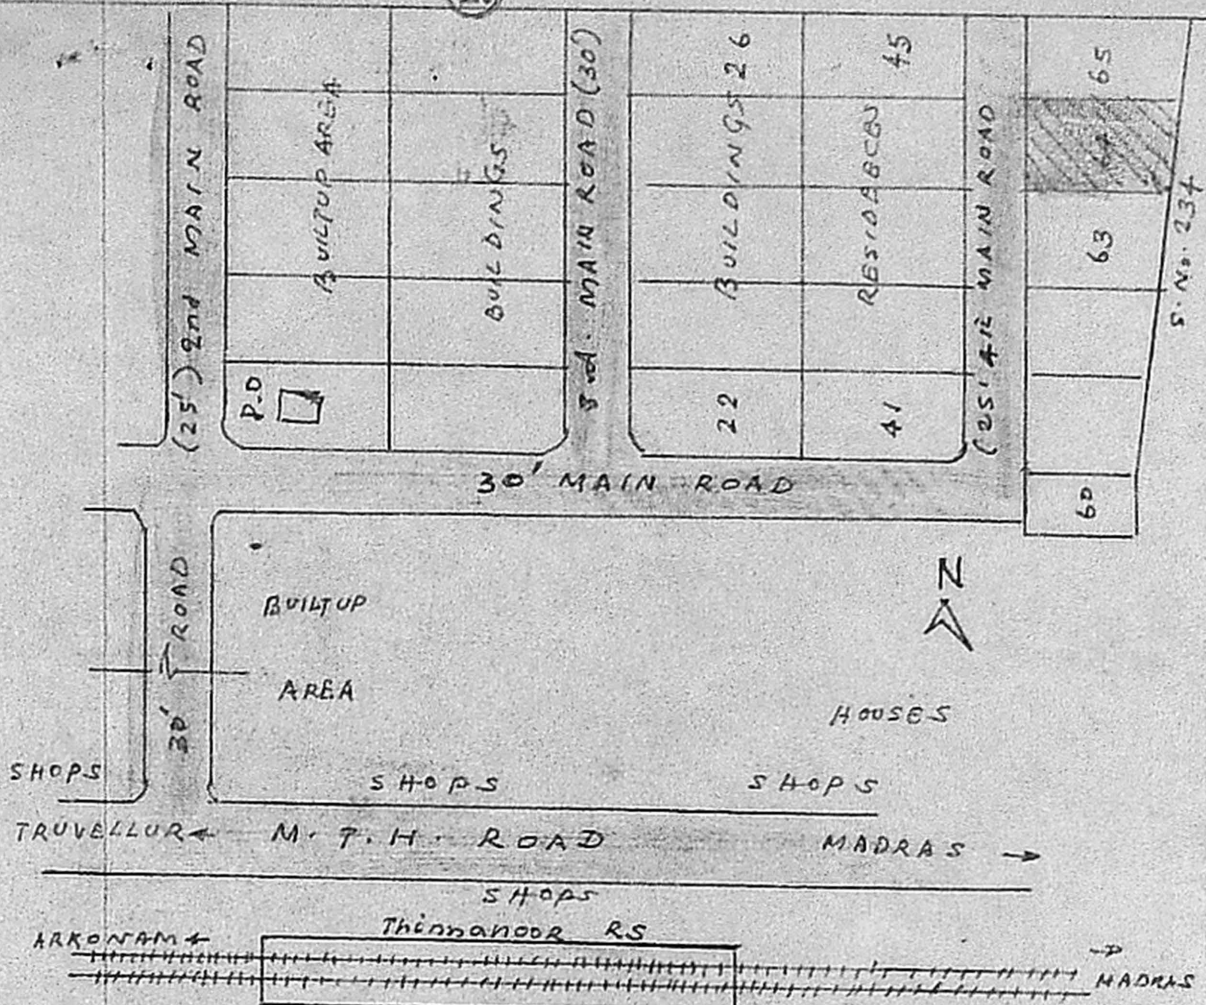 (25') 2nd MAIN ROAD
BUILTUP AREA
BUILDINGS
3rd. MAIN ROAD (30')
BUILDINGS
26
45
RESIDEBCES
(25' 4th MAIN ROAD
65
63
S. No. 234
P.O
22
41
60
30' MAIN ROAD
30' ROAD
BUILTUP
AREA
N
HOUSES
SHOPS
SHOPS
SHOPS
TRUVELLUR ←
M. T. H. ROAD
MADRAS →
SHOPS
Thinnanoor RS
ARKONAM ←
→
MADRAS